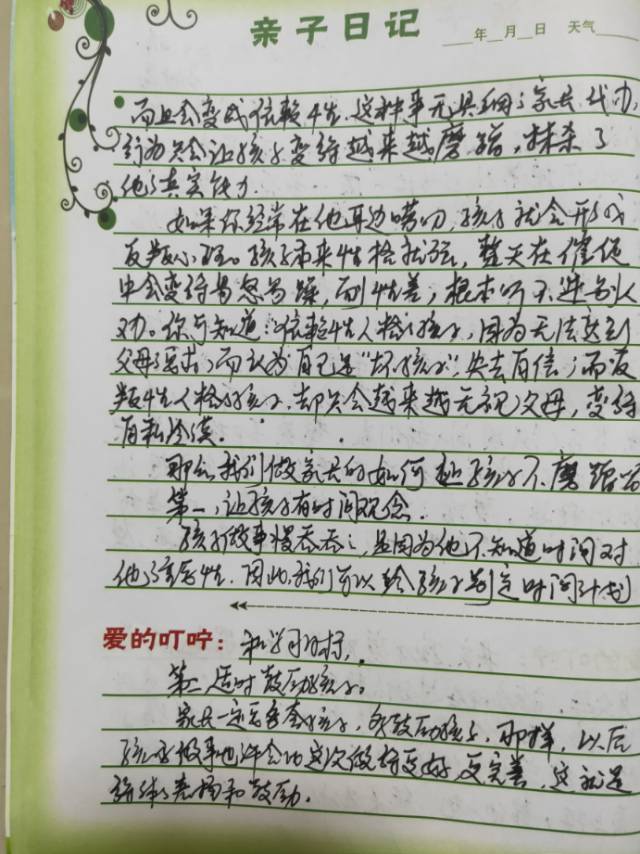 亲子日记 ___年__月__日 天气____
而且会变成依赖性。这种事无具细的家长代办
行为只会让孩子变得越来越磨蹭,抹杀了
他的真实能力
如果你经常在他耳边唠叨,孩子就会形成
反叛心理。孩子本来性格就强,整天在催促
中会变得易怒易躁,耐性差,根本听不进别人
劝。你可知道:依赖性人格的孩子,因为无法达到
父母要求,而认为自己是“坏孩子”,失去自信;而反
叛性人格的孩子,却只会越来越无视父母,变得
自私冷漠。
那么我们做家长的如何让孩子不磨蹭
第一,让孩子有时间观念。
孩子做事慢吞吞,是因为他不知道时间对
他的重要性。因此,我们可以给孩子制定时间计划
爱的叮咛:和学习目标。
第二,适时鼓励孩子。
家长一定要多夸孩子,多鼓励孩子,那样,以后
孩子做事也许会比这次做得更好,更完善,这就是
表扬和鼓励.